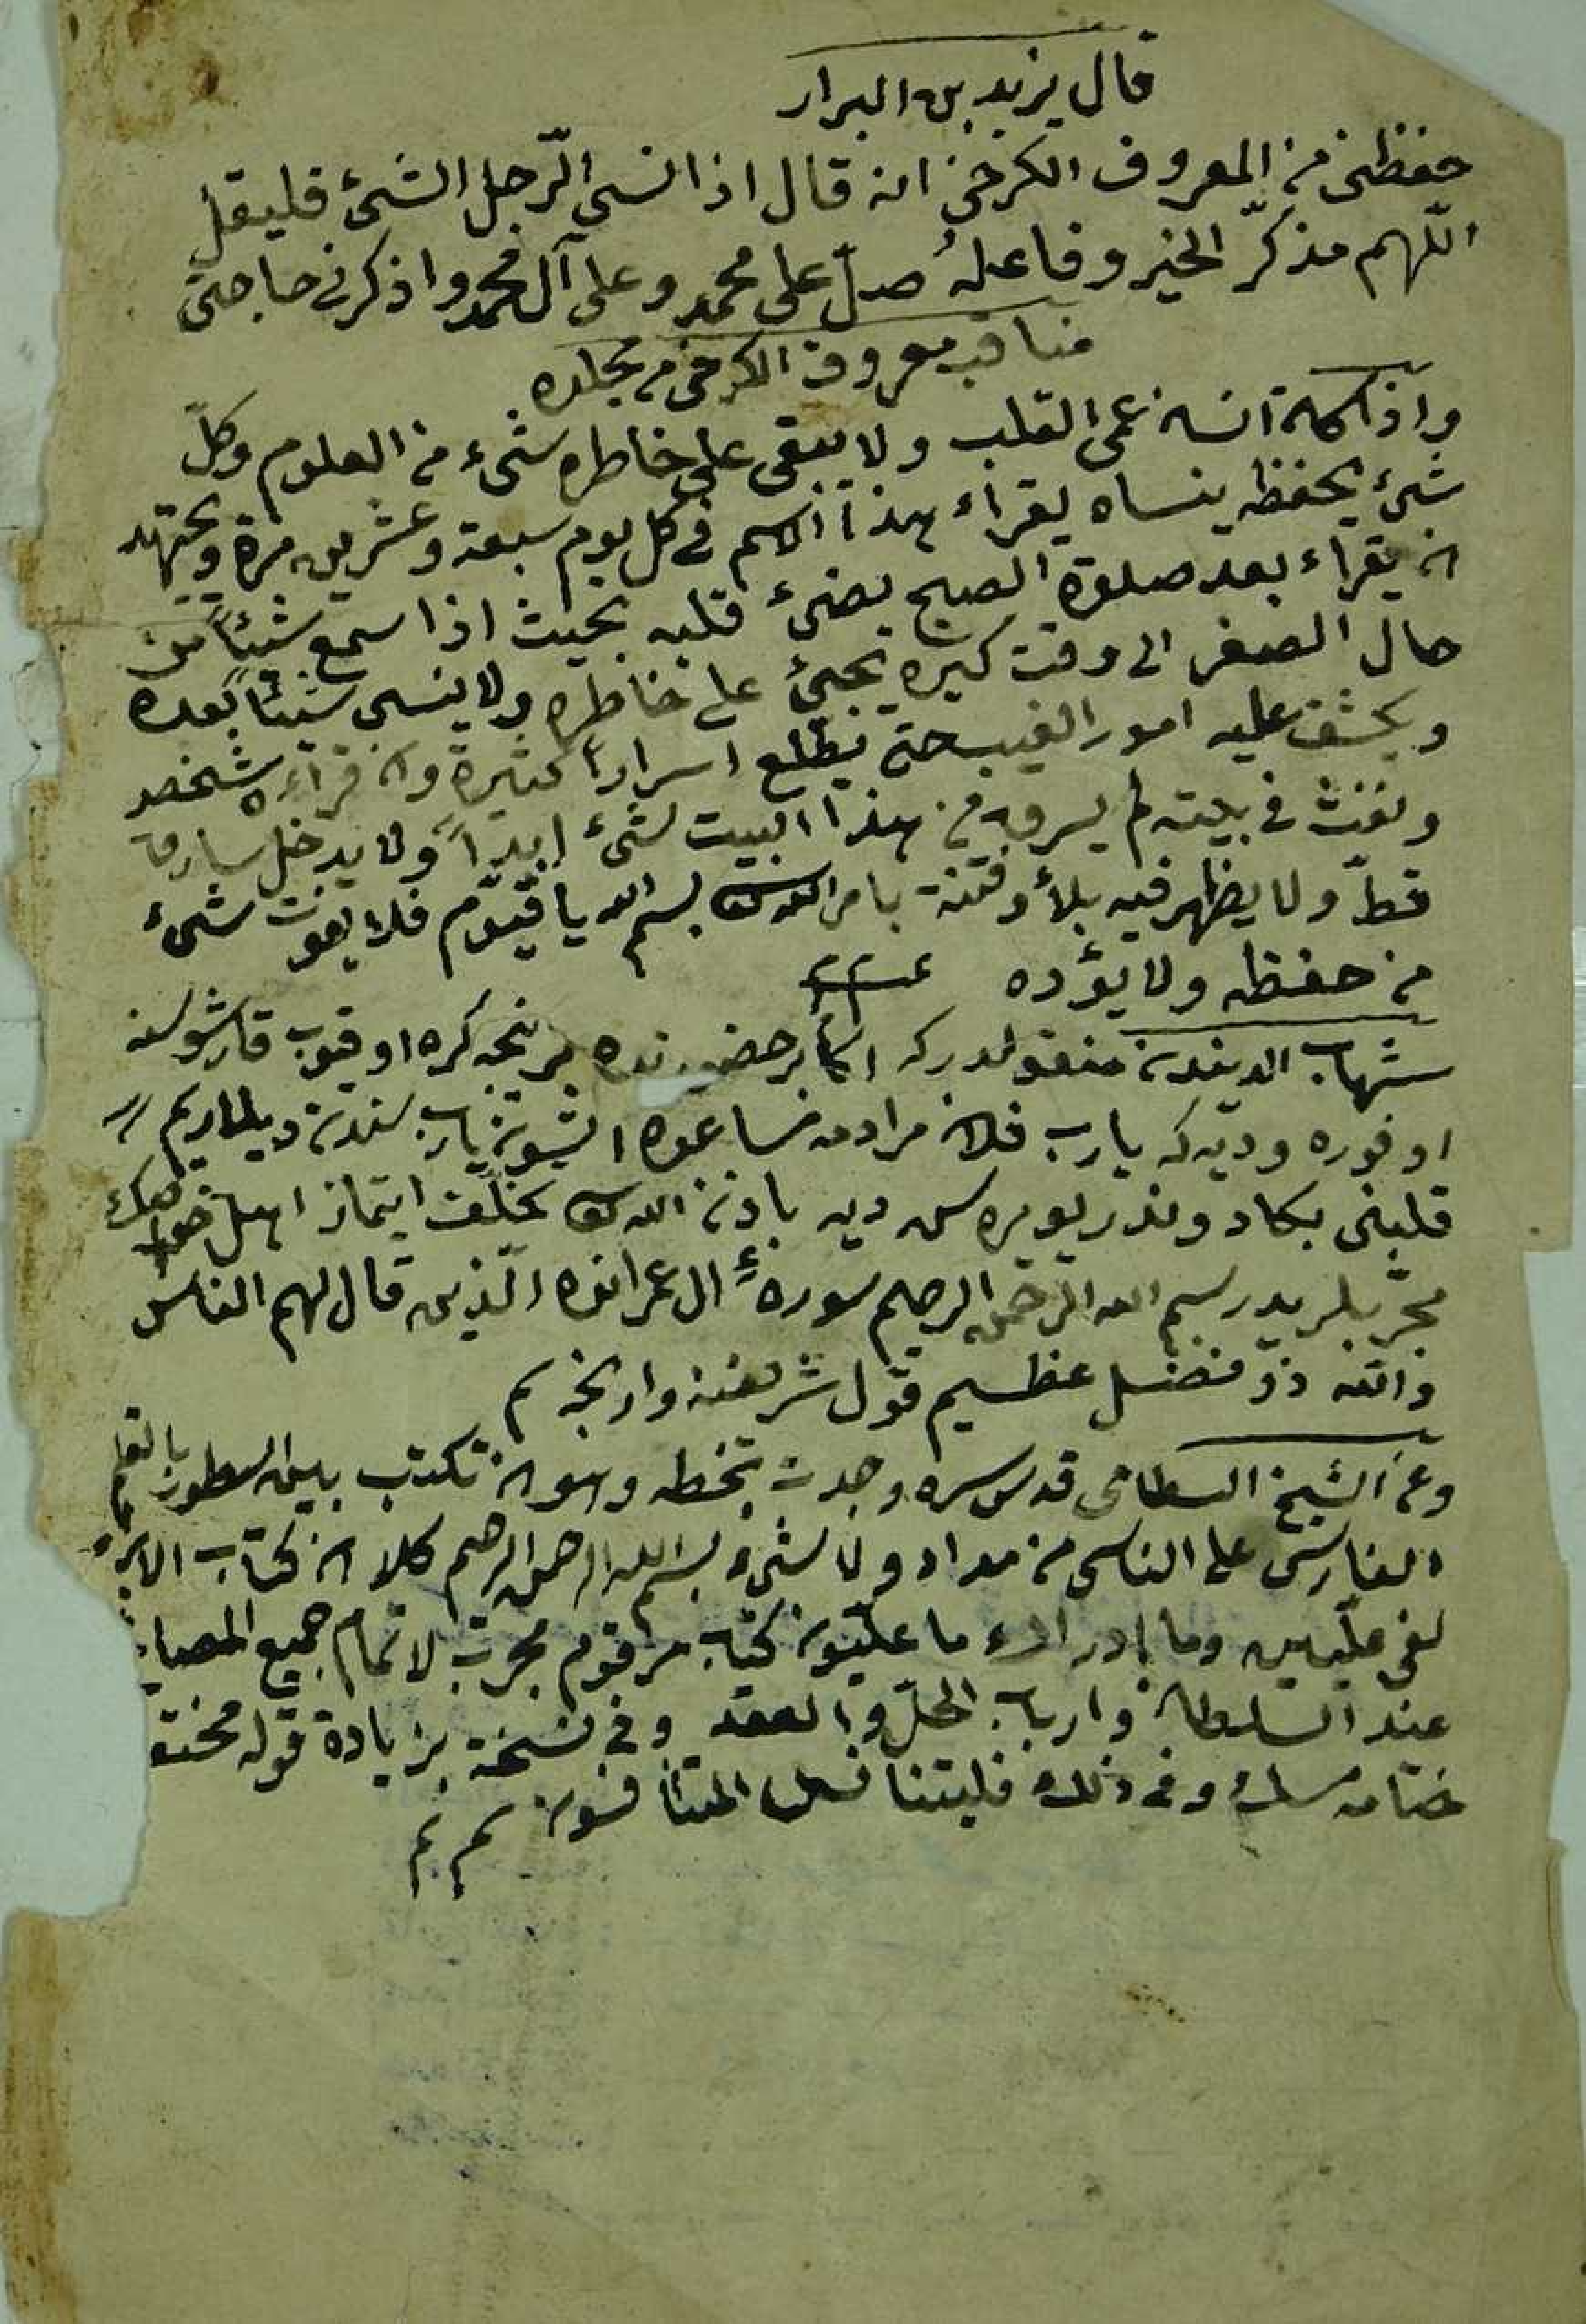 قال يزيد بن البرار
حفظنى من المعروف الكرخى انه قال اذا نسى الرّجل الشئ فليقل
اللّهم مذكّر الخير وفاعلهُ صلّ على محمد وعلى آل محمد واذكرنى حاجتى
مناقب معروف الكرخى م بجلده
واذا كان انسان عمى القلب ولا يبقى على خاطره شىء من العلوم وكلّ
شئ يحفظه ينساه يقراء هذا الاسم فى كل يوم سبعة وعشرين مرة ويجتهد
ان يقراء بعد صلوة الصبح يضئ قلبه بحيث اذا سمع شيئاً من
حال الصغر الى وقت كبره يجئ على خاطره ولا ينسى شيئاً بعده
ويكشف عليه امور الغيب حتى يطلع اسراراً كثيرة وان قراءه شخص
ونفث فى بيته لم يسرق من هذا البيت شئ ابداً ولا يدخل سارق
قطّ ولا يظهر فيه بلأ وفتنة بامر الله بسم الله يا قيّوم فلا يفوت شىء
من حفظه ولا يؤده
شهاب الديندن منقولدر كه اكابر حضورنده بر نجه كره اوقيوب قارشوسنه
اوفوره وديه كه يارب فلان مرادمه مساعده ايتسون يارب سندن ديلارم
قلبنى بكا دوندر يويره سن ديه باذن الله تخلّف ايتماز اهل خواصك
مجرّبلريدر بسم الله الرحمن الرحيم سورهٔ ال عمرانده الّذين قال لهم الناس
والله ذو فضل عظيم قول شريفنه وارنجه م
وعن الشيخ البسطامى قدس سره وجدت بخطه وهو ان تكتب بين السطور بالقلم
الفارسى على الناس من مداد ولا شىء بسم الله الرحمن الرحيم كلا ان كتاب الابرار
لفى علّيين وما ادراك ما علّيون كتاب مرقوم مجرب لاتمام جميع المصا
عند السلطان وارباب الحلّ والعقد وفى نسخة بزيادة قوله مختو
ختامه مسك وفى ذلك فليتنافس المتنافسون تم تم